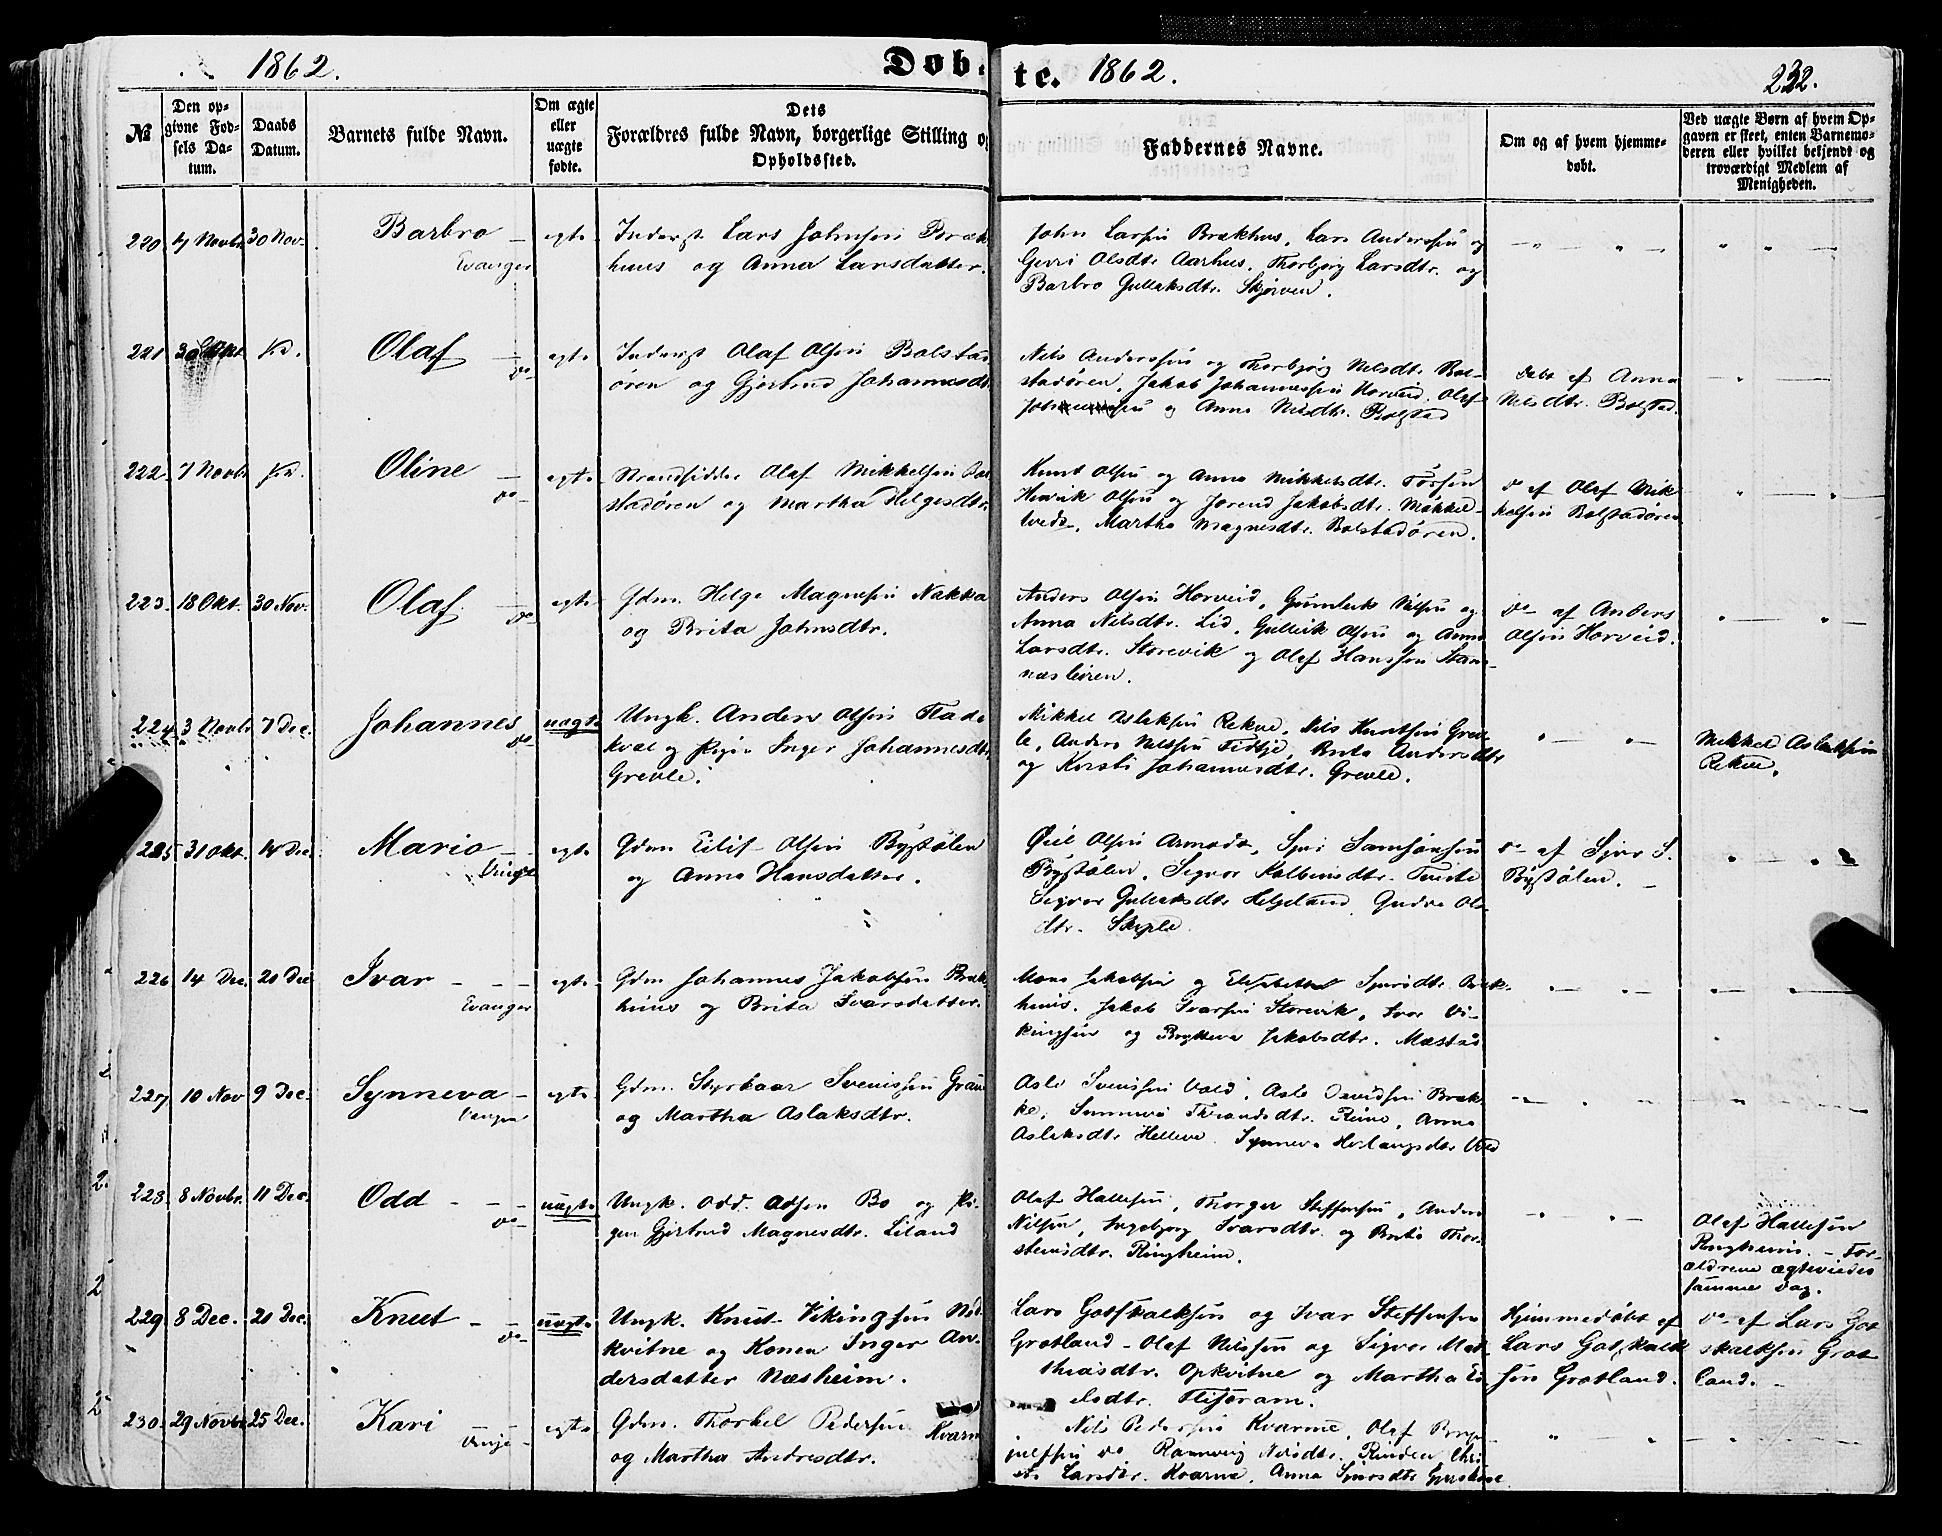 1862.
Døbte.
1862.
232.
№
Den opgivne Fødsels Datum.
Daabs Datum.
Barnets fulde Navn.
Om ægte eller uægte fødte.
Dets Forældres fulde Navn, borgerlige Stilling og Opholdssted.
Faddernes Navne.
Om og af hvem hjemmedøbt.
Ved uægte Børn af hvem Opgaven er skeet, enten Barnemoderen eller hvilket bekjendt og troværdigt Medlem af Menigheden.
220. 4 Novbr. 30 Nov. Barbro
Evanger
egte
Inderst Lars Johnsen Bræk
huus og Anna Larsdatter.
John Larsen Brækhus, Lars Anderssen og
Gurri Olsdtr. Aarhus, Thorbjørg Larsdtr. og
Barbro Gullaksdtr. Skjørven.
221. 30 Okt. Olaf
do
egte
Inderst Olaf Olsen Bolstad
øren og Gjertrud Johannesdt
Nils Anderssen og Thorbjørg Nilsdtr. Bol-
stadøren, Jakob Johannessen Horveid, Olaf
og Anna Nilsdtr. Bolstad
Døbt af Anna
Nilsdtr. Bolstad.
222. 7 Novbr. Oline
do
egte
Strandsidder Olaf Mikkelsen Bol
stadøren og Martha Helgesdtr.
Knut Olsen og Anna Mikkelsdtr. Fosse
Henrik Olsen og Jorend Jakobsdtr. Mikkel-
tvedt, Martha Magnesdtr. Bolstadøren.
do af Olaf Mik
kelsen Bolstadøren
223. 18 Okt. 30 Nov. Olaf
do
egte
Gdm. Helge Magnesen Nakka
og Brita Johnsdtr.
Anders Olsen Horveid, Gunleik Nilsen og
Anna Nilsdtr. Lid, Gullik Olsen og Anna
Larsdtr. Storevik og Olaf Hanssen Stam-
næsleiren.
do af Anders
Olsen Horveid.
224. 3 Novbr 7 Dec. Johannes
do
uægte
Ungk. Anders Olsen Flade
kval og Pigen Inger Johannesdtr.
Grevle.
Mikkel Aslaksen Rekve, Nils Knutsen Grev-
le, Anders Nilssen Fedtje, Brita Andersdtr
og Kirsti Johannesdtr. Grevle.
Mikkel Aslaksen
Rekve.
225 31 Okt. 14 Dec. Maria
Vinje
egte
Gdm Eilif Olsen Bystølen
og Anna Hansdatter.
Olsen Sjur Samsonsen
Bystølen, Sigvor Kolbeinsdtr.
Sigvor Gullaksdtr Helgeland, Gudve Ols-
dtr. Skjple.
do af Sjur S.
Bystølen.
226 14 Dec. 21 Dec Ivar
Evanger
egte
Gdm Johannes Jakobsen Bræk-
huus og Brita Ivarsdatter.
Mons Jakobsen og Elisabetha Sjursdtr. Bræk-
huus, Jakob Ivarsen Storevik, Ivar Vi-
kingsen og Brytteva Jakobsdtr. Mæstad
227 10 Nov 9 Dec. Synneva
Vangen
egte
Gdm. Styrkaar Svenissen Grau
og Martha Aslaksdtr.
Asle Svenissen Vold, Asle Davidsen Bræk-
ke, Sunneva Throndsdtr. Rene, Anna
Aslaksdtr Helleve. Synneva Herlaugsdtr Vold
228. 8 Novbr. 11 Dec. Odd
do
uægte
Ungk. Odd Odsen Bø og Pi-
gen Gjertrud Magnesdtr. Liland
Olaf Hallesen, Thorger Steffensen, Anders
Nilsen, Ingebjørg Ivarsdtr. og Brita Thor-
stensdtr. Ringheim.
Olaf Hallesen
Ringheim. - For-
ældrene ægteviedes
samme Dag.
229. 8 Dec. 21 Dec. Knut
do
uægte
Ungk. Knut Vikingsen Ned
kvitne og Konen Inger An-
dersdatter Næsheim.
Lars Gotskalksen og Ivar Steffensen
Grotland - Olaf Nilssen og Sigvor Mat-
thiasdtr. Opkvitne og Martha
Hjemmedøbt af
Lars Gotskalk
sen Grotland.
do af Lars Got
skalksen Grot
land.
230. 29 Novbr. 25 Dec. Kari
Vinje
egte
Gdm. Thorkel Pedersen Kvarm
og Martha Andresdtr.
Nils Pedersen Kvarme, Olaf
do Rannveig Nilsdtr. Rinden, Chri
Larsdtr. Kvarme, Anna Sjursdtr